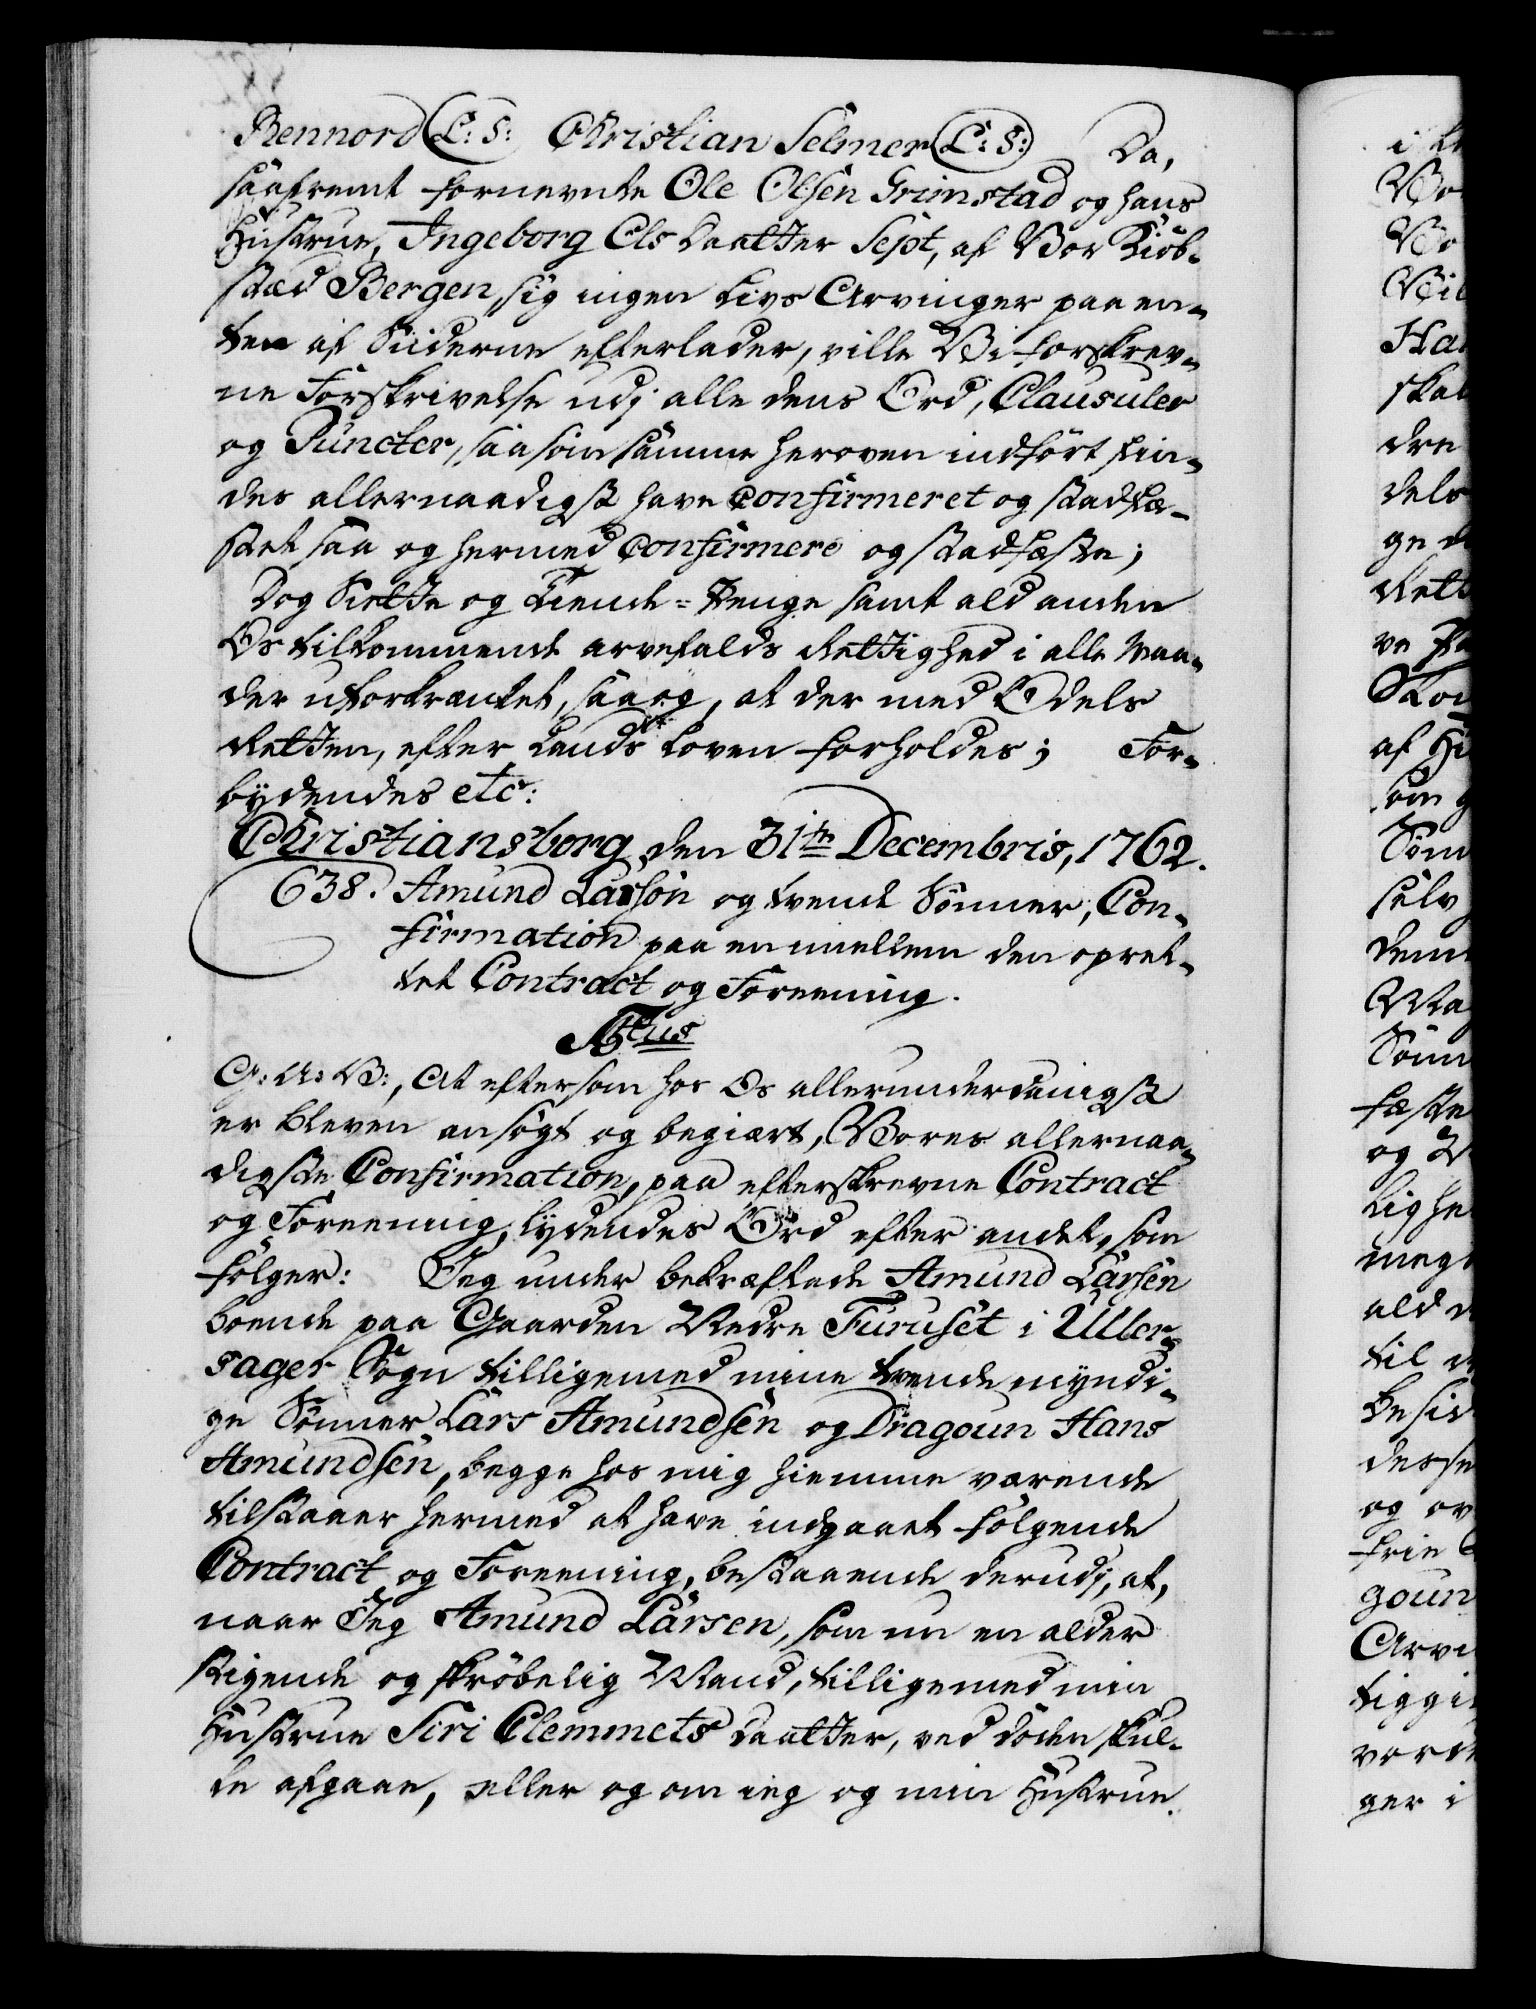 Rennord L: S: Christian Selmer L: S: Da,
saafremt fornevnte Ole Olsen Grimstad og hans
Hustrue, Ingeborg Ols Daatter Sejot, af Vor Kiöb-
stæd Bergen, sig ingen Livs Arvinger paa en-
ten af Siiderne efterlader, ville Vi forskrev-
ne Forskrivelse udj alle dens Ord, Clausuler
og Puncter, saasom samme heroven indfört fin-
des allernaadigst have Confirmeret og stadfæ-
stet saa og hermed Confirmere og stadfæste;
Dog Siette og Tiende-Penge samt ald anden
Os tilkommende arvefalds Rettighed i alle Maa-
der uforkrænket, saa og, at der med Odels
Retten, efter Lands Loven forholdes; For-
bydendes etc:
Christiansborg den 31te Decembris, 1762.
638. Amund Larsön og tvende Sönner, Con-
firmation paa en imellem dem opret-
tet Contract og Foreening.
Afhus
G: A: V:, At eftersom hos Os allerunderdanigst
er bleven ansögt og begiært, Vores allernaa-
digste Confirmation, paa efterskrevne Contract
og Foreening, lydendes Ord efter andet, som
fölger: Jeg under bekræftede Amund Larsen
boende paa Gaarden Nedre Furuset i Uller-
sager Sogn tilligemed mine tvende myndi-
ge Sönner Lars Amundsen og Dragoun Hans
Amundsen, begge hos mig hiemme værende
tilstaaer hermed at have indgaaet fölgende
Contract og Foreening, bestaaende derudj, at,
naar Jeg Amund Larsen, som nu en alder
stigende og skröbelig Mand, tilligemed min
Hustrue Siri Clemmets Daatter, ved döden skul-
de afgaae, eller og om jeg og min Hustrue